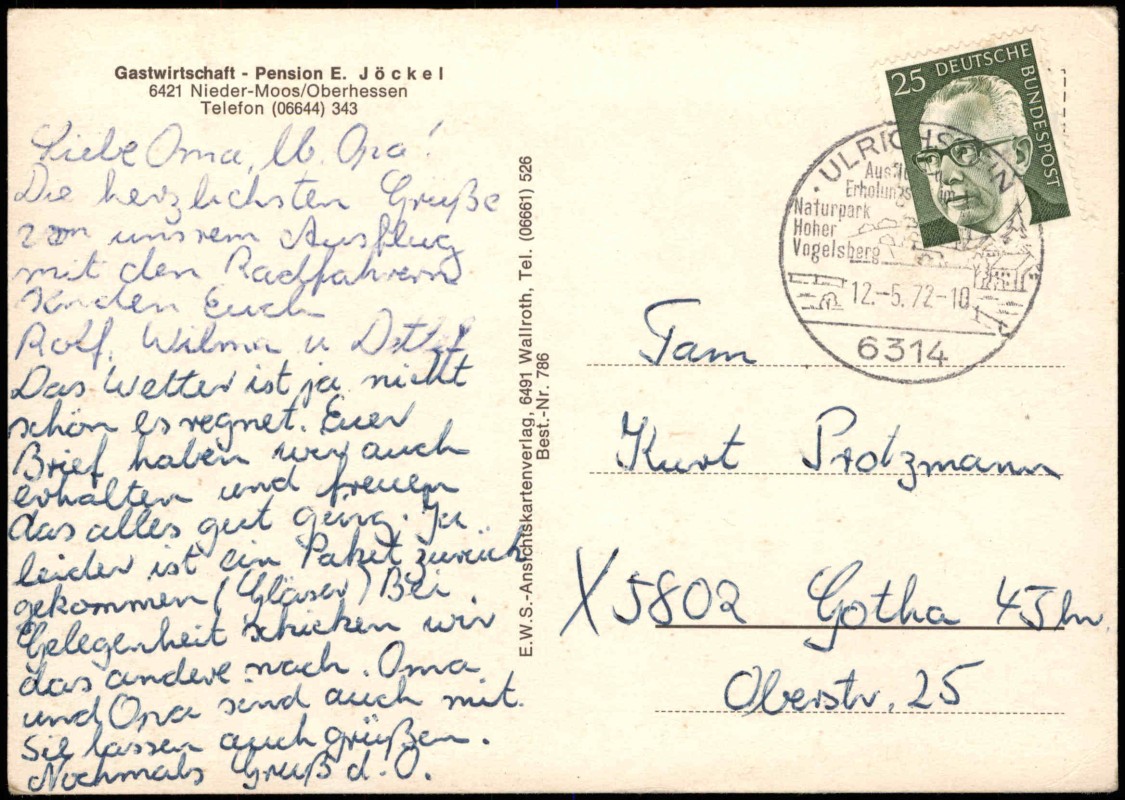 Gastwirtschaft - Pension E. Jöckel
6421 Nieder-Moos/Oberhessen
Telefon (06644) 343
Liebe Oma, lb. Opa!
Die herzlichsten Grüße
von unsrem Ausflug
mit den Radfahrern
senden Euch
Rolf, Wilma u
Das Wetter ist ja nicht
schön es regnet. Euer
Brief haben wir auch
erhalten und freuen
das alles gut ging. Ja
leider ist ein Paket zurück
gekommen (Gläser) Bei
Gelegenheit schicken wir
das andere nach. Oma
und Opa sind auch mit.
Sie lassen auch grüßen.
Nochmals Gruß d. O.
E.W.S.-Ansichtskartenverlag, 6491 Wallroth, Tel. (06661) 526
Best.-Nr. 786
25 DEUTSCHE BUNDESPOST
ULRICHSTEIN
Naturpark
Hoher
Vogelsberg
12.-5.72-10
6314
Fam
Kurt Protzmann
X 5802 Gotha
Oberstr. 25